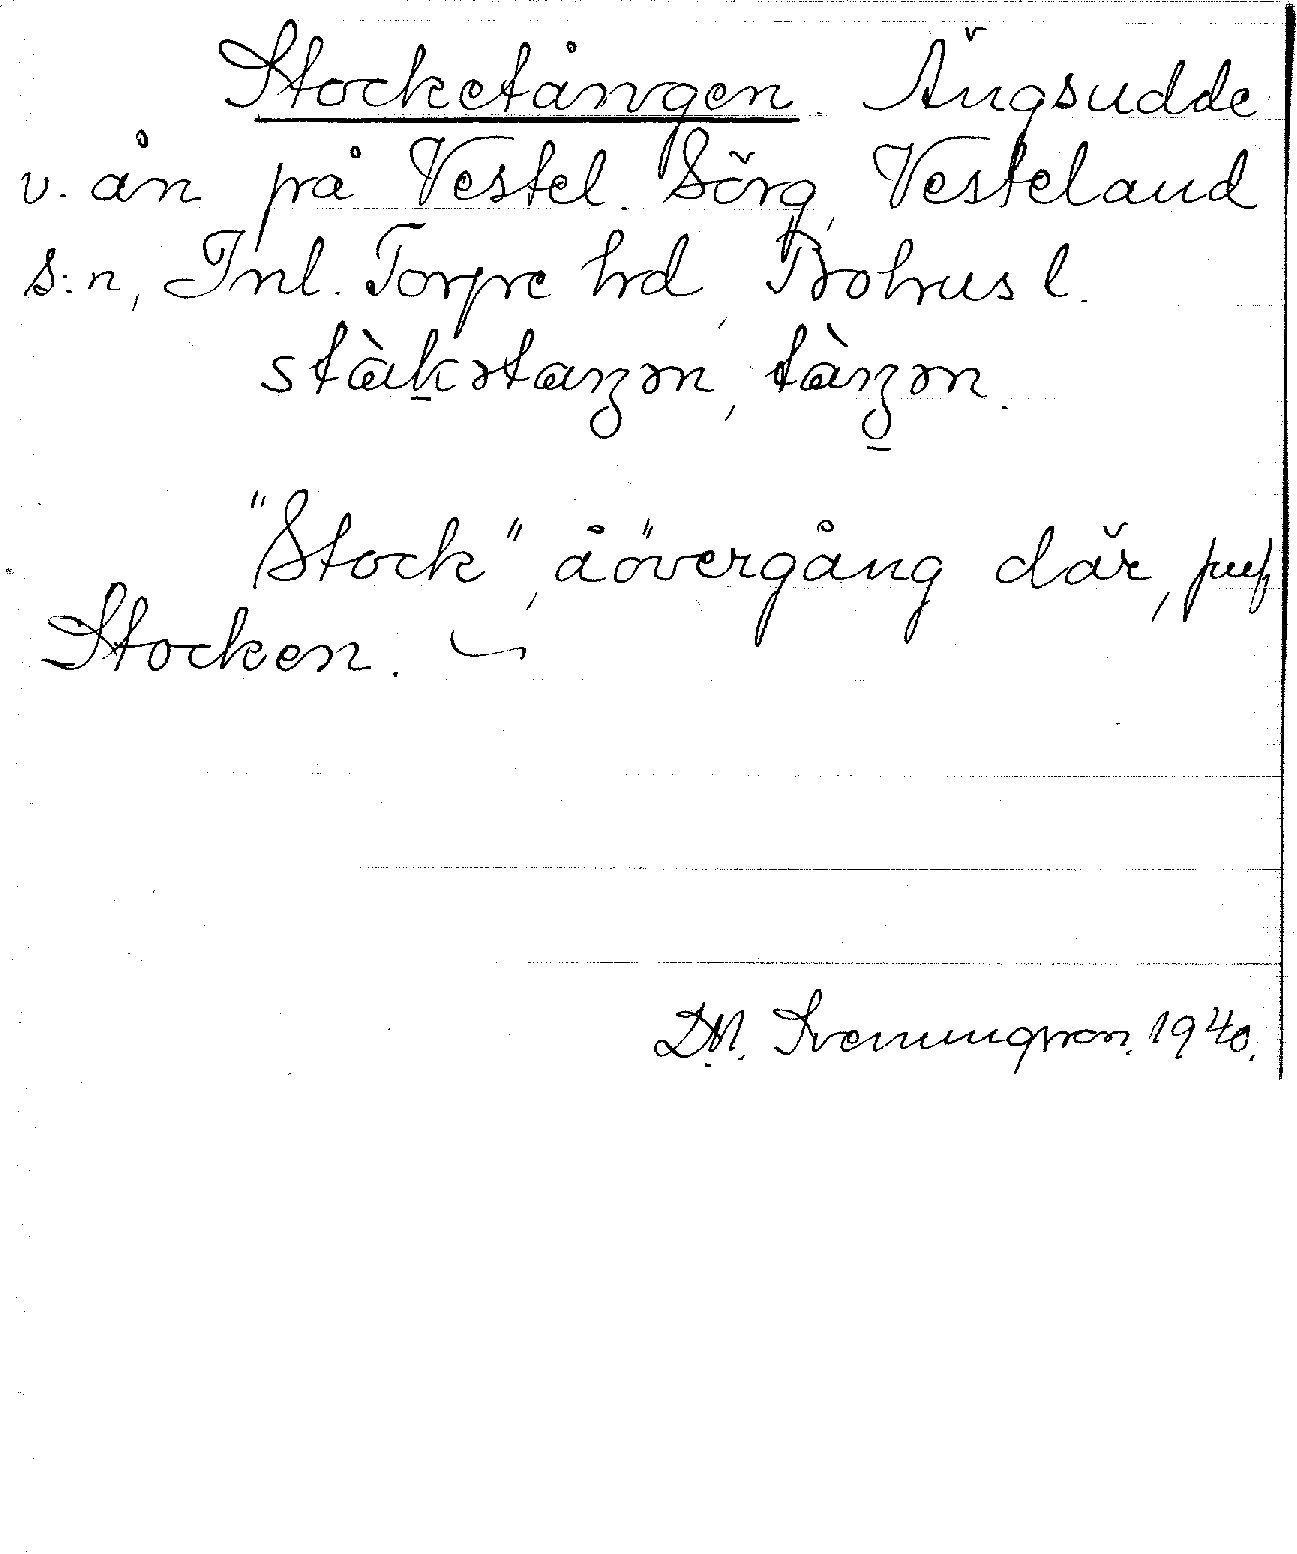 Stocketången. Ängsudde
v. ån på Vestel. Sörg, Vesteland
s:n, Inl. Torpe hd, Bohusl.
stàkətaŋən, tàŋən.
"Stock", åövergång där, jmf
Stocken.
D.N. Sveningson. 1940.